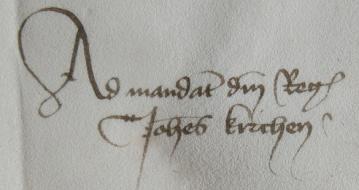 Ad mandat dni Reg
Johes kirchen